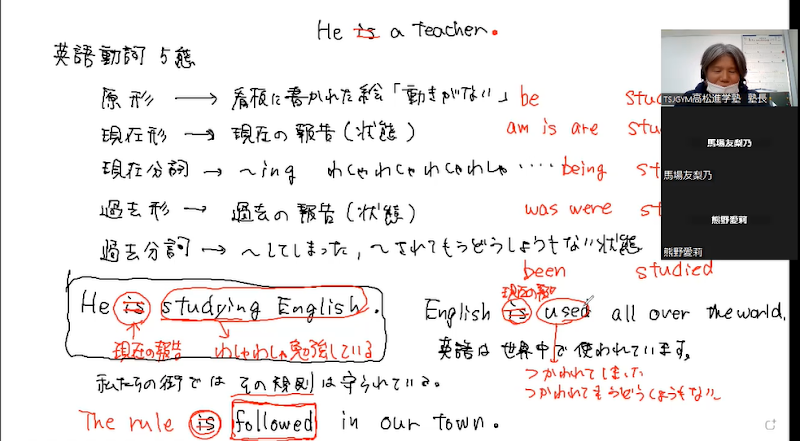 He is a teacher.
英語動詞 5態
原形 → 看板に書かれた絵「動きがない」 be stud
現在形 → 現在の報告(状態) am is are stud
現在分詞 → ~ing わしゃわしゃわしゃわしゃ ‥‥ being stud
過去形 → 過去の報告(状態) was were st
過去分詞 → ~してしまった, ~されてもうどうしようもない状態
been studied
He is studying English.
現在の報告 わしゃわしゃ勉強している
現在の報告
English is used all over the world.
英語は世界中で使われています。
つかわれてしまった
つかわれてもうどうしようもない
私たちの街では その規則は守られている。
The rule is followed in our town.
TSJGYM高松進学塾 塾長
馬場友梨乃
馬場友梨乃
熊野愛莉
熊野愛莉